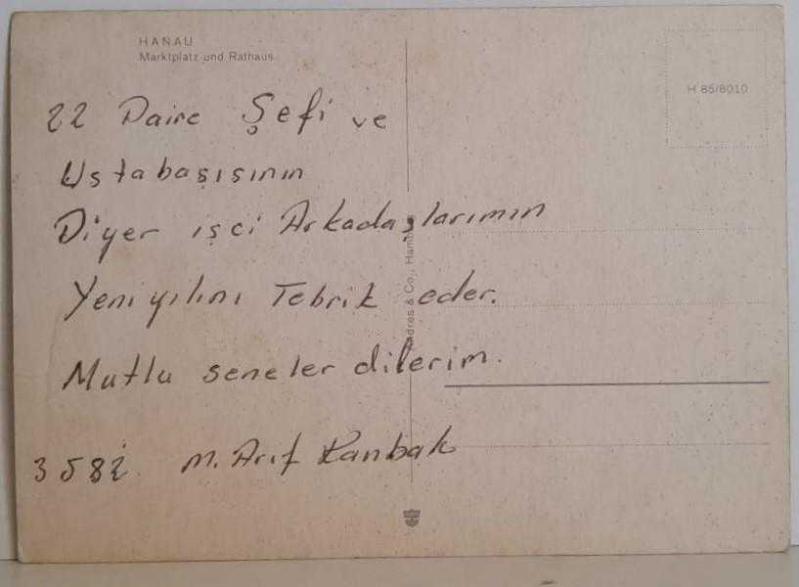 HANAU
Marktplatz und Rathaus
H 85/8010
22 Daire Şefi ve
Ustabaşısının
Diyer işci Arkadaşlarımın
Yeni yılını Tebrik eder.
Mutlu seneler dilerim.
M. Arif Kanbak
& Co., Ham